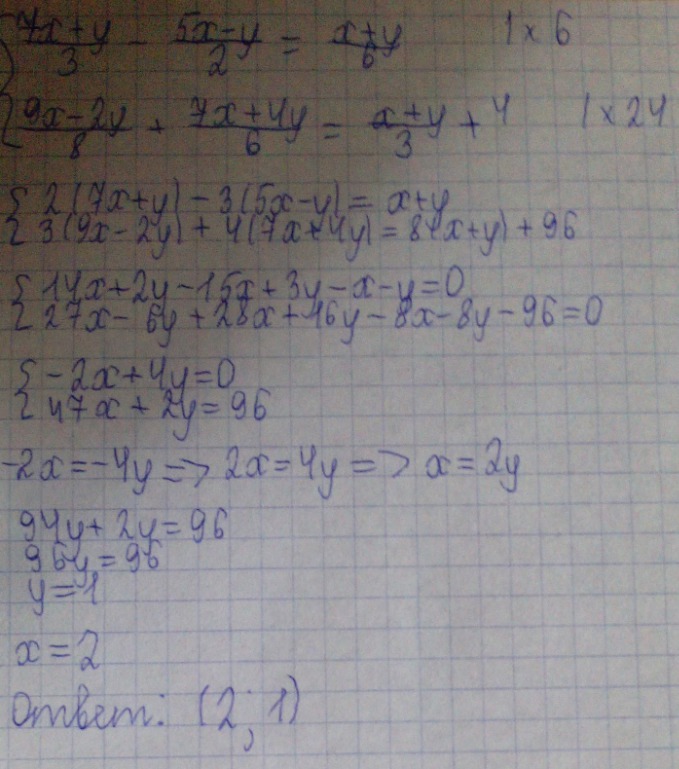 { (7x+y)/3 - (5x-y)/2 = (x+y)/6 | × 6
{ (9x-2y)/8 + (7x+4y)/6 = (x+y)/3 + 4 | × 24
{ 2(7x+y) - 3(5x-y) = x+y
{ 3(9x-2y) + 4(7x+4y) = 8(x+y) + 96
{ 14x+2y-15x+3y-x-y=0
{ 27x-6y+28x+16y-8x-8y-96=0
{ -2x+4y=0
{ 47x+2y=96
-2x=-4y => 2x=4y => x=2y
94y+2y=96
96y=96
y=1
x=2
Ответ: (2; 1)